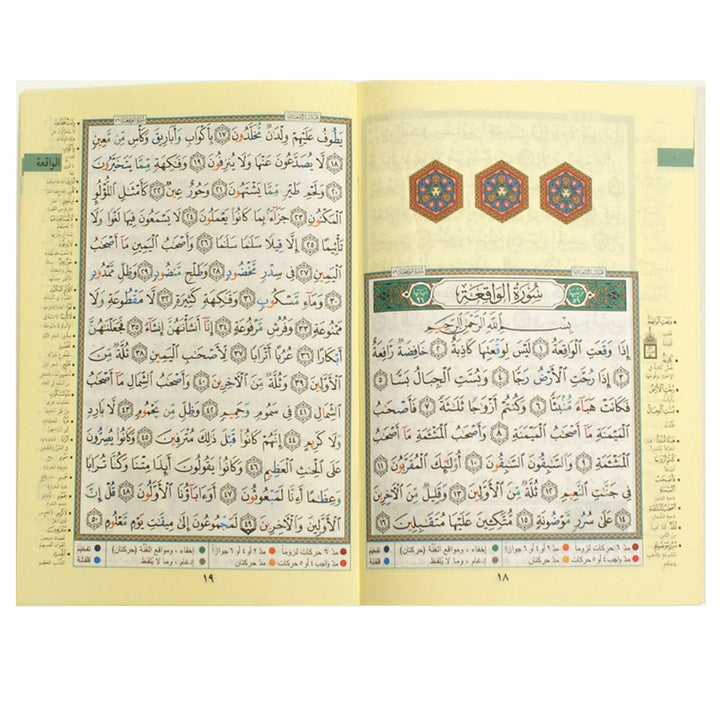 سُورَةُ الوَاقِعَة
بِسْمِ اللَّهِ الرَّحْمَنِ الرَّحِيمِ
إِذَا وَقَعَتِ ٱلْوَاقِعَةُ ١ لَيْسَ لِوَقْعَتِهَا كَاذِبَةٌ ٢ خَافِضَةٌ رَّافِعَةٌ
٣ إِذَا رُجَّتِ ٱلْأَرْضُ رَجًّا ٤ وَبُسَّتِ ٱلْجِبَالُ بَسًّا ٥
فَكَانَتْ هَبَآءً مُّنۢبَثًّا ٦ وَكُنتُمْ أَزْوَٰجًا ثَلَٰثَةً ٧ فَأَصْحَٰبُ
ٱلْمَيْمَنَةِ مَآ أَصْحَٰبُ ٱلْمَيْمَنَةِ ٨ وَأَصْحَٰبُ ٱلْمَشْـَٔمَةِ مَآ أَصْحَٰبُ
ٱلْمَشْـَٔمَةِ ٩ وَٱلسَّٰبِقُونَ ٱلسَّٰبِقُونَ ١٠ أُو۟لَٰٓئِكَ ٱلْمُقَرَّبُونَ ١١
فِى جَنَّٰتِ ٱلنَّعِيمِ ١٢ ثُلَّةٌ مِّنَ ٱلْأَوَّلِينَ ١٣ وَقَلِيلٌ مِّنَ ٱلْءَاخِرِينَ
١٤ عَلَىٰ سُرُرٍ مَّوْضُونَةٍ ١٥ مُّتَّكِـِٔينَ عَلَيْهَا مُتَقَٰبِلِينَ ١٦
مدّ ٦ حركات لزوماً مدّ ٢ أو ٤ أو ٦ جوازاً إخفاء، ومواقع الغُنَّة (حركتان) تفخيم
مدّ واجب ٤ أو ٥ حركات مدّ حركتان إدغام، وما لا يُلفَظ قلقلة
١٨
الواقعة
يَطُوفُ عَلَيْهِمْ وِلْدَٰنٌ مُّخَلَّدُونَ ١٧ بِأَكْوَابٍ وَأَبَارِيقَ وَكَأْسٍ مِّن مَّعِينٍ
١٨ لَّا يُصَدَّعُونَ عَنْهَا وَلَا يُنزِفُونَ ١٩ وَفَٰكِهَةٍ مِّمَّا يَتَخَيَّرُونَ
٢٠ وَلَحْمِ طَيْرٍ مِّمَّا يَشْتَهُونَ ٢١ وَحُورٌ عِينٌ ٢٢ كَأَمْثَٰلِ ٱللُّؤْلُؤِ
ٱلْمَكْنُونِ ٢٣ جَزَآءًۢ بِمَا كَانُوا۟ يَعْمَلُونَ ٢٤ لَا يَسْمَعُونَ فِيهَا لَغْوًا وَلَا
تَأْثِيمًا ٢٥ إِلَّا قِيلًا سَلَٰمًا سَلَٰمًا ٢٦ وَأَصْحَٰبُ ٱلْيَمِينِ مَآ أَصْحَٰبُ
ٱلْيَمِينِ ٢٧ فِى سِدْرٍ مَّخْضُودٍ ٢٨ وَطَلْحٍ مَّنضُودٍ ٢٩ وَظِلٍّ مَّمْدُودٍ
٣٠ وَمَآءٍ مَّسْكُوبٍ ٣١ وَفَٰكِهَةٍ كَثِيرَةٍ ٣٢ لَّا مَقْطُوعَةٍ وَلَا
مَمْنُوعَةٍ ٣٣ وَفُرُشٍ مَّرْفُوعَةٍ ٣٤ إِنَّآ أَنشَأْنَٰهُنَّ إِنشَآءً ٣٥ فَجَعَلْنَٰهُنَّ
أَبْكَارًا ٣٦ عُرُبًا أَتْرَابًا ٣٧ لِّأَصْحَٰبِ ٱلْيَمِينِ ٣٨ ثُلَّةٌ مِّنَ
ٱلْأَوَّلِينَ ٣٩ وَثُلَّةٌ مِّنَ ٱلْءَاخِرِينَ ٤٠ وَأَصْحَٰبُ ٱلشِّمَالِ مَآ أَصْحَٰبُ
ٱلشِّمَالِ ٤١ فِى سَمُومٍ وَحَمِيمٍ ٤٢ وَظِلٍّ مِّن يَحْمُومٍ ٤٣ لَّا بَارِدٍ
وَلَا كَرِيمٍ ٤٤ إِنَّهُمْ كَانُوا۟ قَبْلَ ذَٰلِكَ مُتْرَفِينَ ٤٥ وَكَانُوا۟ يُصِرُّونَ
عَلَى ٱلْحِنثِ ٱلْعَظِيمِ ٤٦ وَكَانُوا۟ يَقُولُونَ أَئِذَا مِتْنَا وَكُنَّا تُرَابًا
وَعِظَٰمًا أَءِنَّا لَمَبْعُوثُونَ ٤٧ أَوَءَابَآؤُنَا ٱلْأَوَّلُونَ ٤٨ قُلْ إِنَّ
ٱلْأَوَّلِينَ وَٱلْءَاخِرِينَ ٤٩ لَمَجْمُوعُونَ إِلَىٰ مِيقَٰتِ يَوْمٍ مَّعْلُومٍ ٥٠
مدّ ٦ حركات لزوماً مدّ ٢ أو ٤ أو ٦ جوازاً إخفاء، ومواقع الغُنَّة (حركتان) تفخيم
مدّ واجب ٤ أو ٥ حركات مدّ حركتان إدغام، وما لا يُلفَظ قلقلة
١٩